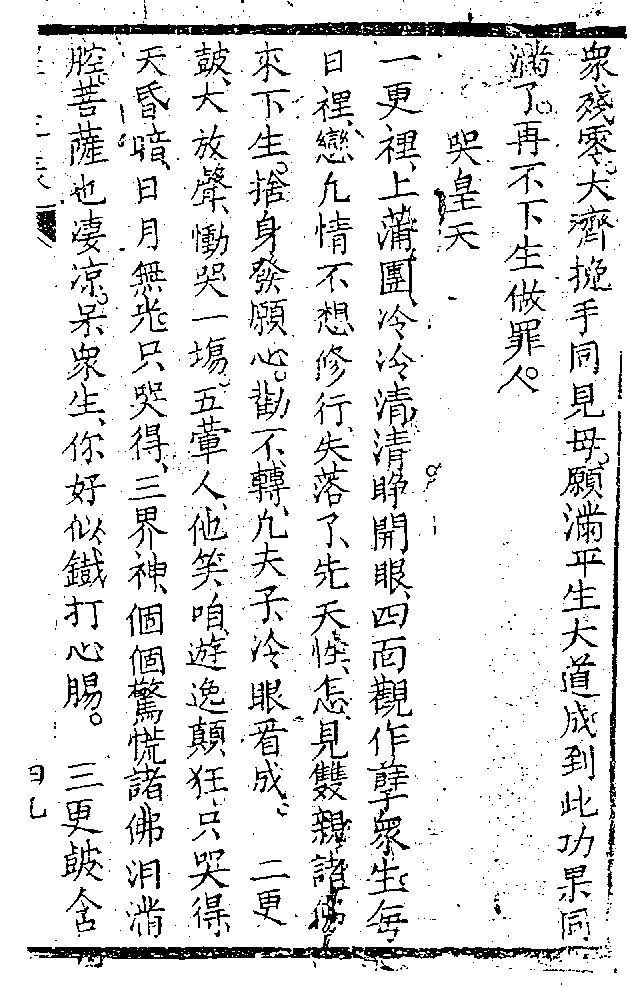 衆殘零。大濟挽手同見母。願滿平生大道成到此功果同
滿了。再不下生做罪人。
哭皇天
一更裡、上蒲團、冷冷清清睁開眼、四面觀作孽衆生每
日裡、戀凢情不想修行、失落了、先天性、怎見雙親諸佛
來下生。捨身發願心。勸不轉、凢夫子、冷眼看成、　二更
鼓、大放聲、慟哭一塲。五葷人、他笑咱、遊逸顛狂、只哭得
天昏暗、日月無光、只哭得、三界神、個個驚慌諸佛泪滿
腔。菩薩也凄凉。呆衆生、你好似、鐵打心腸。　三更鼓含